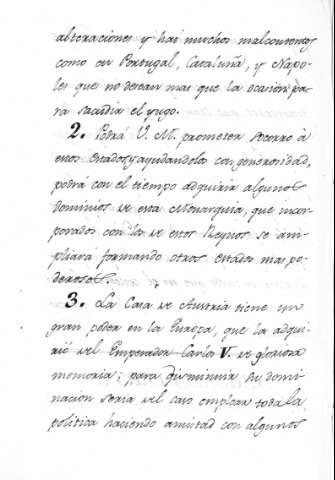 alteraciones y hai muchos malcontentos
como en Portugal, Cataluña, y Napo-
les que no desean mas que la ocasion pa-
ra sacudir el yugo.
2. Podrá V. M. prometer socorro à
estos Estados y ayudandolos con generosidad,
podrá con el tiempo adquirir algunos
dominios de esta Monarquia, que incor-
porados con los de estos Reynos se am-
pliara formando otros Estados mas po-
derosos.
3. La Casa de Austria tiene un
gran poder en la Europa, que la adqui-
rió del Emperador Carlos V. de gloriosa
memoria; para disminuir su domi-
nacion seria del caso emplear toda la
politica haciendo amistad con algunos